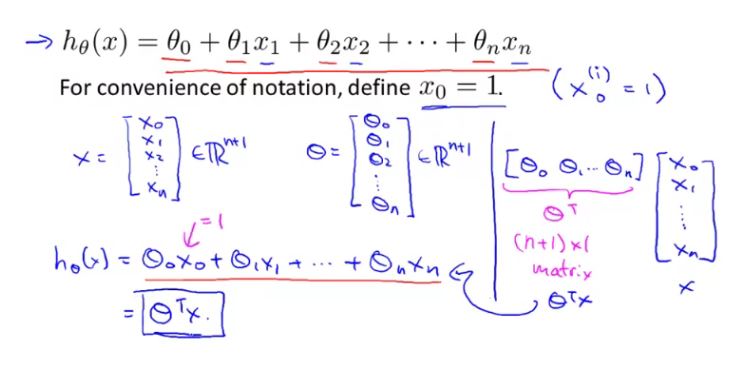 → hθ(x) = θ₀ + θ₁x₁ + θ₂x₂ + ⋯ + θₙxₙ
For convenience of notation, define x₀ = 1. (x₀⁽ⁱ⁾ = 1)
x = [x₀ x₁ x₂ ⋮ xₙ] ∈ ℝⁿ⁺¹ θ = [θ₀ θ₁ θ₂ ⋮ θₙ] ∈ ℝⁿ⁺¹
[θ₀ θ₁ ⋯ θₙ] [x₀ x₁ ⋮ xₙ]
θᵀ
(n+1) × 1
matrix
x
θᵀx
= 1
hθ(x) = θ₀x₀ + θ₁x₁ + ⋯ + θₙxₙ
= θᵀx.